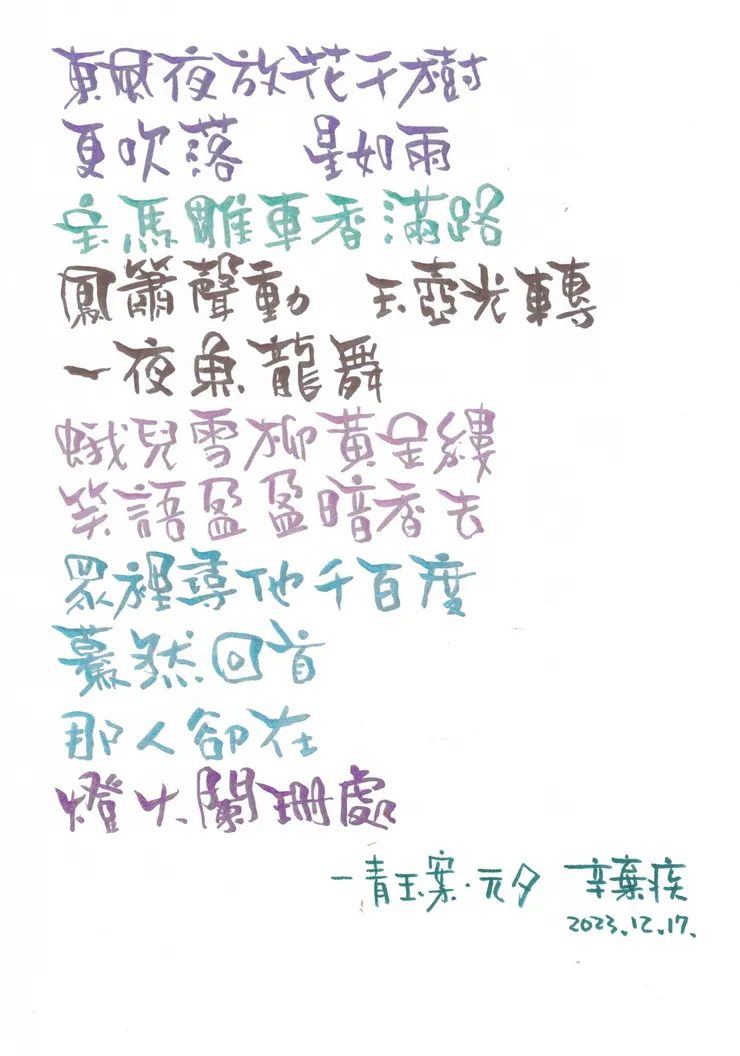 東風夜放花千樹
更吹落　星如雨
宝馬雕車香滿路
鳳簫聲動　玉壺光轉
一夜魚龍舞
蛾兒雪柳黃金縷
笑語盈盈暗香去
眾裡尋他千百度
驀然回首
那人卻在
燈火闌珊處
－青玉案·元夕　辛棄疾
2023.12.17.